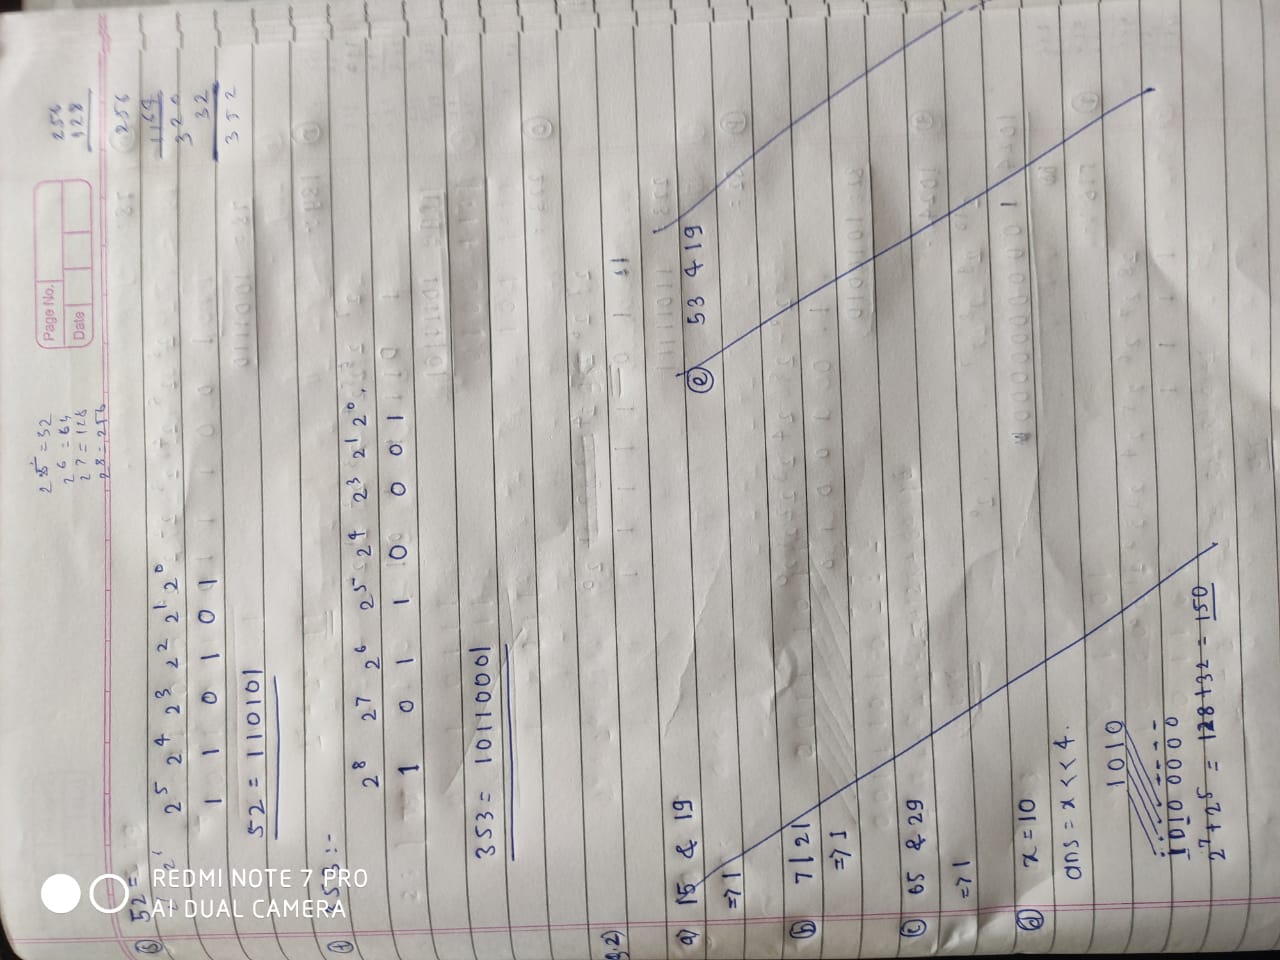 Page No.
Date
2⁵ = 32
2 6 = 64
2 7 = 128
2 8 = 256
256
128
256
320
32
352
52 =
2⁵ 2⁴ 2³ 2² 2¹ 2⁰
1 1 0 1 0 1
52 = 110101
353 :-
2⁸ 27 2⁶ 2⁵ 2⁴ 2³ 2¹ 2⁰.
1 0 1 1 0 0 0 1
353 = 10110001
Q.2)
a) 15 & 19
=> 1
(e) 53 & 19
(b) 7 | 21
=> 1
(c) 65 & 29
=> 1
(d) x = 10
ans = x << 4.
1010
1010 0000
2⁷ + 2⁵ = 128 + 32 = 150
REDMI NOTE 7 PRO
AI DUAL CAMERA